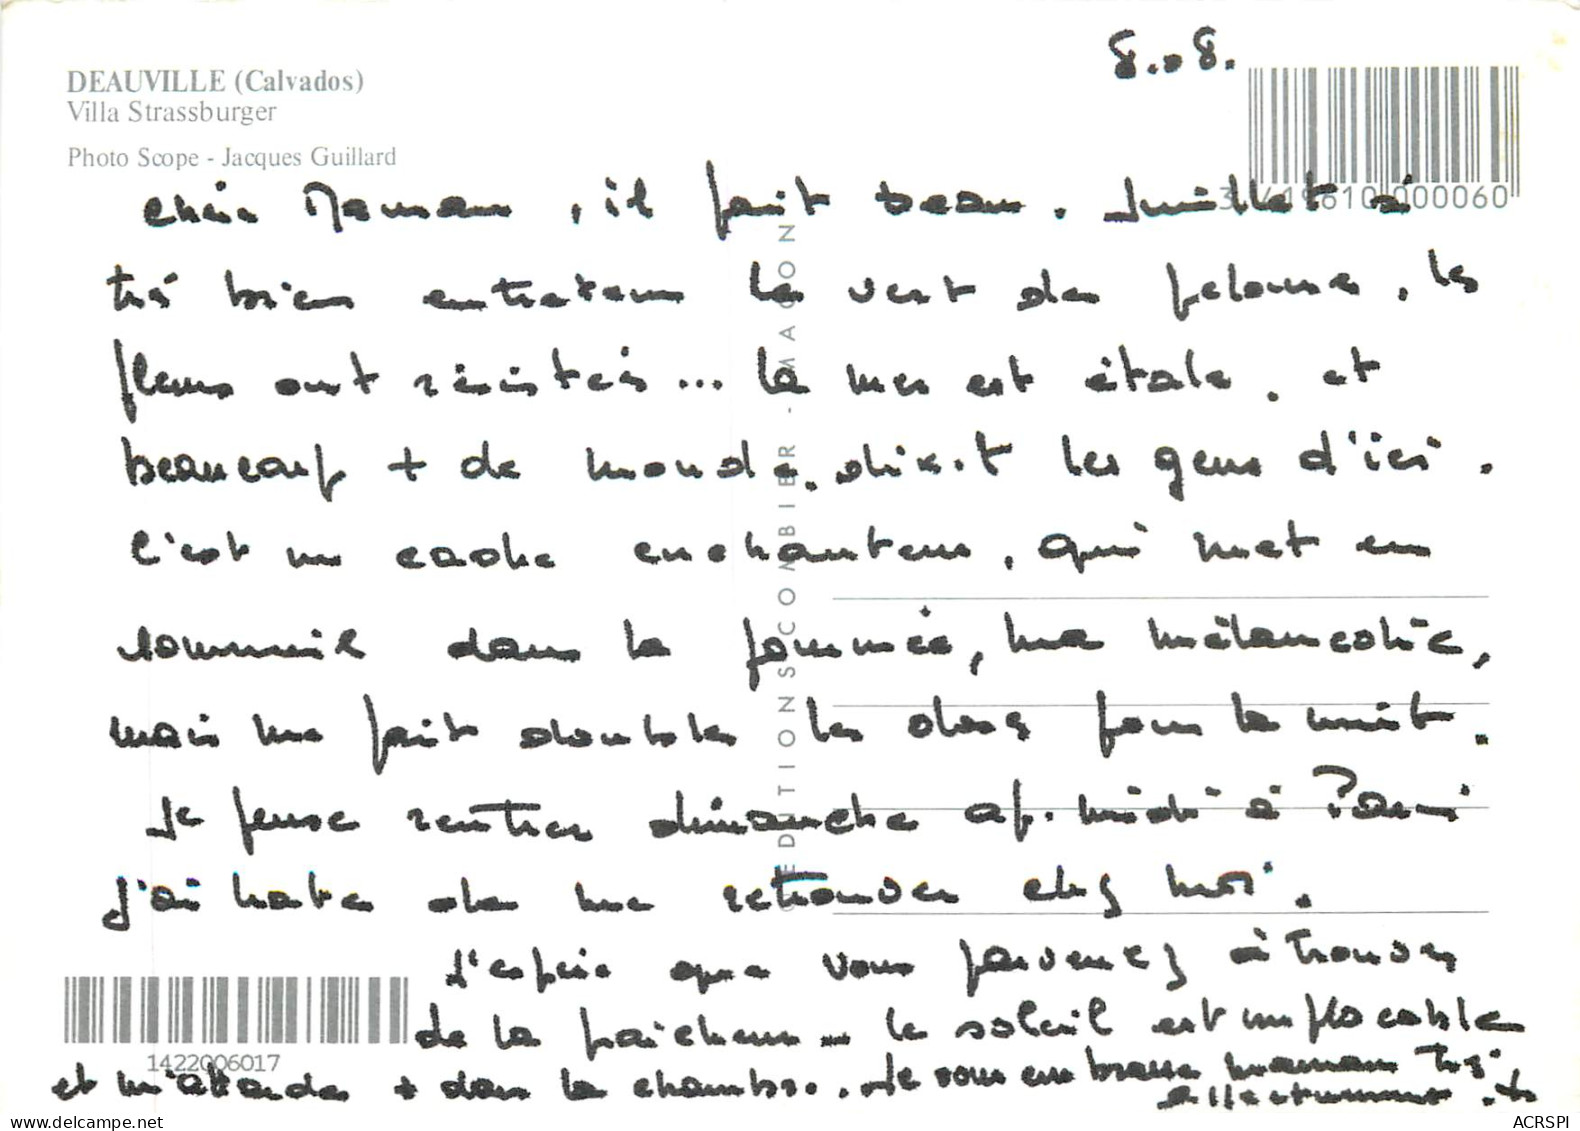 8.08.
DEAUVILLE (Calvados)
Villa Strassburger
Photo Scope - Jacques Guillard
chère Maman, il fait beau. Juillet à
très bien entretenu le vert des pelouses, les
fleurs ont résisté... la mer est étale. et
beaucoup + de monde. les gens d'ici.
C'est un cadre enchanteur, qui met en
sommeil dans la journée, ma mélancolie,
mais me fait doubler les doses pour la nuit.
Je pense rentrer dimanche ap. midi à Paris
J'ai hâte de me retrouver chez moi.
J'espère que vous parvenez à trouver
de la fraîcheur... le soleil est implacable
et + dans la chambre... Je vous embrasse maman très
affectueusement.
© EDITIONS COMBIER - MACON
1422006017
ACRSPI